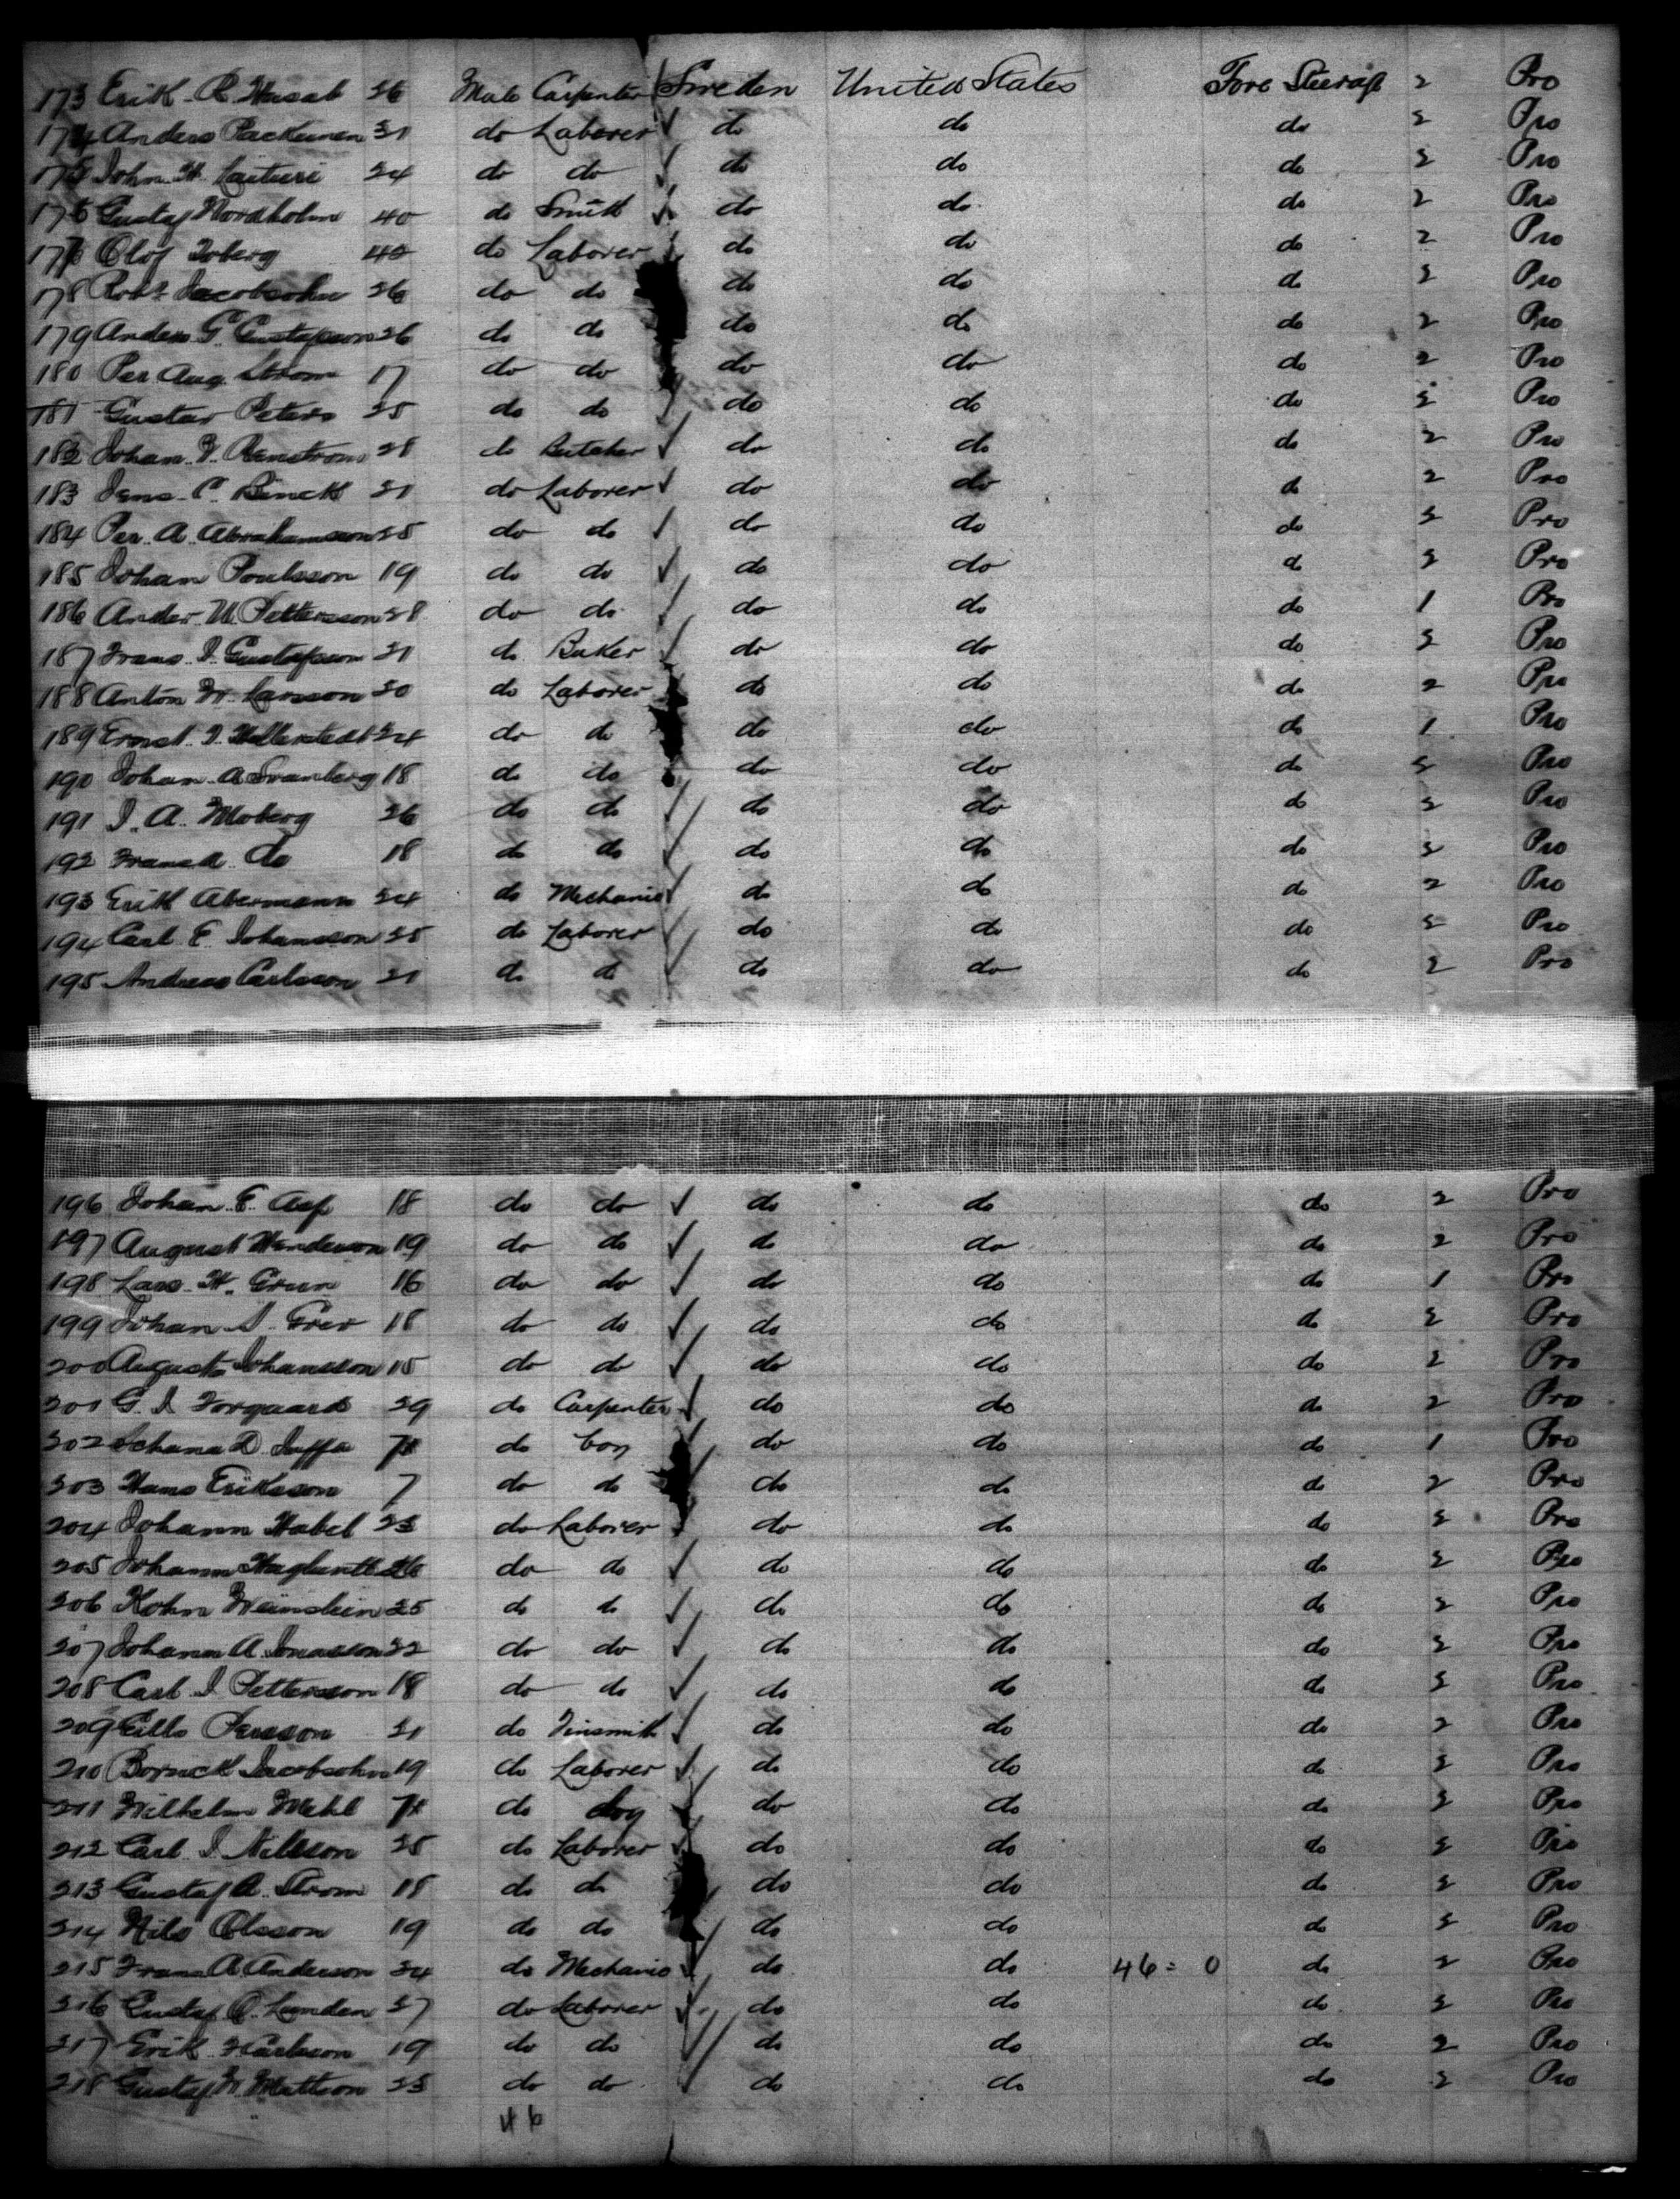 173 Erik R. Hasab 26 Male Carpenter Sweden United States Fore Steerage 2 Pro
174 Anders Packeunen 21 do Laborer do do do 2 Pro
175 John H. Lautieri 24 do do do do do 2 Pro
176 Gustaf Nordholm 40 do Smith do do do 2 Pro
177 Olof Toberg 40 do Laborer do do do 2 Pro
178 Robt Jacobsohn 26 do do do do do 2 Pro
179 Anders G. Gustafsson 26 do do do do do 2 Pro
180 Per Aug. Strom 17 do do do do do 2 Pro
181 Gustav Peters 25 do do do do do 2 Pro
182 Johan F. Renstrom 28 do Butcher do do do 2 Pro
183 Jens C. Binck 21 do Laborer do do do 2 Pro
184 Per A. Abrahamsson 25 do do do do do 2 Pro
185 Johan Poulsson 19 do do do do do 2 Pro
186 Ander W. Pettersson 28 do do do do do 1 Pro
187 Frans I. Gustafsson 21 do Baker do do do 2 Pro
188 Anton W. Larsson 20 do Laborer do do do 2 Pro
189 Ernst I. Hellerstedt 24 do do do do do 1 Pro
190 Johan A. Svanberg 18 do do do do do 2 Pro
191 I. A. Moberg 26 do do do do do 2 Pro
192 Frans A. do 18 do do do do do 2 Pro
193 Erik Abermann 24 do Mechanic do do do 2 Pro
194 Carl E. Johansson 25 do Laborer do do do 2 Pro
195 Andreas Carlsson 21 do do do do do 2 Pro
196 Johan E. Asp 18 do do do do do 2 Pro
197 August Henderson 19 do do do do do 2 Pro
198 Lars H. Grun 16 do do do do do 1 Pro
199 Johan S. Grev 18 do do do do do 2 Pro
200 August Johansson 15 do do do do do 2 Pro
201 G. I. Forgaard 29 do Carpenter do do do 2 Pro
202 D. Juffa 7 do boy do do do 1 Pro
203 Hans Eriksson 7 do do do do do 2 Pro
204 Johann Habel 23 do Laborer do do do 2 Pro
205 Johann Haglunth 26 do do do do do 2 Pro
206 Kohn Weinstein 25 do do do do do 2 Pro
207 Johann A. Jonasson 22 do do do do do 2 Pro
208 Carl I. Petterson 18 do do do do do 2 Pro
209 Persson 21 do Tinsmith do do do 2 Pro
210 Boruck Jacobsohn 19 do Laborer do do do 2 Pro
211 Wilhelm Mehl 7 do boy do do do 2 Pro
212 Carl I. Nilsson 25 do Laborer do do do 2 Pro
213 Gustaf A. Strom 18 do do do do do 2 Pro
214 Nils Olsson 19 do do do do do 2 Pro
215 Frans A. Anderson 24 do Mechanic do do 46 = 0 do 2 Pro
216 Gustaf A. Lunden 27 do Laborer do do do 2 Pro
217 Erik F. Karlsson 19 do do do do do 2 Pro
218 Gustaf W. Mattson 23 do do do do do 2 Pro
46